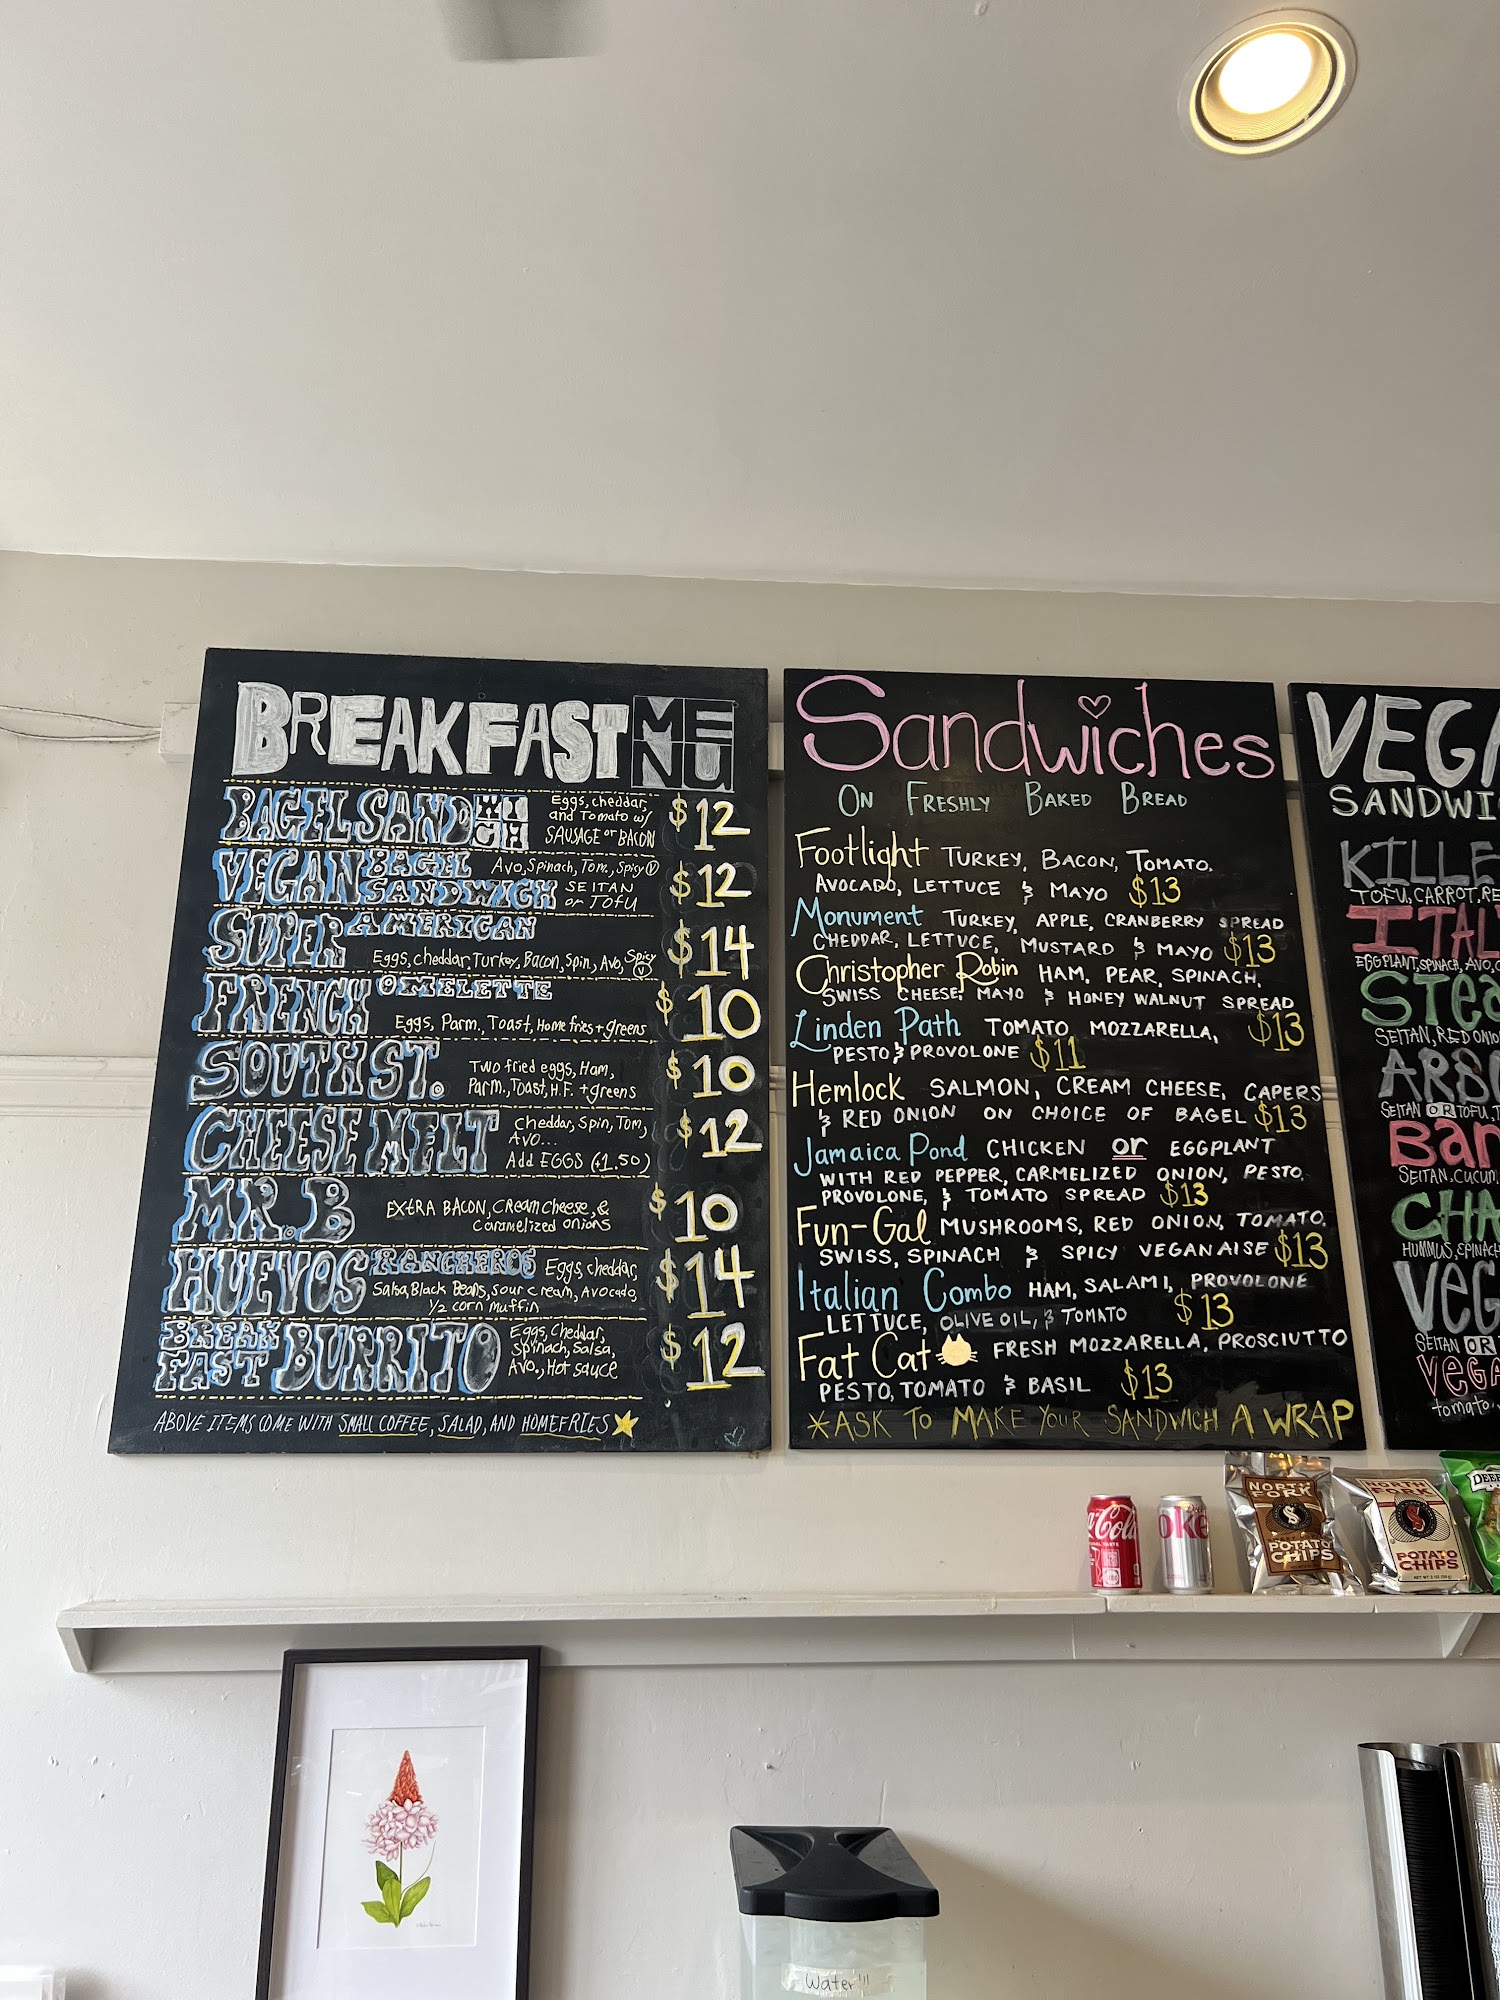 BREAKFAST MENU
BAGEL SANDWICH Eggs, cheddar, $12
and Tomato w/
SAUSAGE or BACON
VEGAN BAGEL SANDWICH Avo, Spinach, Tom., Spicy V $12
SEITAN
or TOFU
SUPER AMERICAN $14
Eggs, cheddar, Turkey, Bacon, Spin., Avo, Spicy V
FRENCH OMELETTE $10
Eggs, Parm., Toast, Home fries + greens
SOUTH ST. Two fried eggs, Ham, $10
Parm., Toast, H.F. + greens
CHEESE MELT Cheddar, Spin, Tom, $12
AVO...
Add EGGS (+1.50)
MR. B EXTRA BACON, Cream cheese, & $10
Caramelized onions
HUEVOS RANCHEROS Eggs, cheddar, $14
Salsa, Black Beans, sour cream, Avocado,
1/2 corn muffin
BREAKFAST BURRITO Eggs, Cheddar, $12
Spinach, Salsa,
Avo., Hot sauce
ABOVE ITEMS COME WITH SMALL COFFEE, SALAD, AND HOMEFRIES
Sandwiches
ON FRESHLY BAKED BREAD
Footlight TURKEY, BACON, TOMATO,
AVOCADO, LETTUCE & MAYO $13
Monument TURKEY, APPLE, CRANBERRY SPREAD
CHEDDAR, LETTUCE, MUSTARD & MAYO $13
Christopher Robin HAM, PEAR, SPINACH,
SWISS CHEESE, MAYO & HONEY WALNUT SPREAD
$13
Linden Path TOMATO, MOZZARELLA,
PESTO & PROVOLONE $11
Hemlock SALMON, CREAM CHEESE, CAPERS
& RED ONION ON CHOICE OF BAGEL $13
Jamaica Pond CHICKEN or EGGPLANT
WITH RED PEPPER, CARMELIZED ONION, PESTO,
PROVOLONE, & TOMATO SPREAD $13
Fun-Gal MUSHROOMS, RED ONION, TOMATO,
SWISS, SPINACH & SPICY VEGANAISE $13
Italian Combo HAM, SALAMI, PROVOLONE
LETTUCE, OLIVE OIL, & TOMATO $13
Fat Cat FRESH MOZZARELLA, PROSCIUTTO
PESTO, TOMATO & BASIL $13
*ASK TO MAKE YOUR SANDWICH A WRAP
VEGA
SANDWI
KILLE
TOFU, CARROT, RE
ITAL
EGGPLANT, SPINACH, AVO,
STEA
SEITAN, RED ONIO
ARBO
SEITAN OR TOFU, T
Ban
SEITAN, CUCUM
CHA
HUMMUS, SPINACH
VEG
SEITAN OR
VEGA
tomato,
Coca-Cola
oke
NORTH FORK
POTATO CHIPS
NORTH FORK
POTATO CHIPS
DEEP
Water!!!